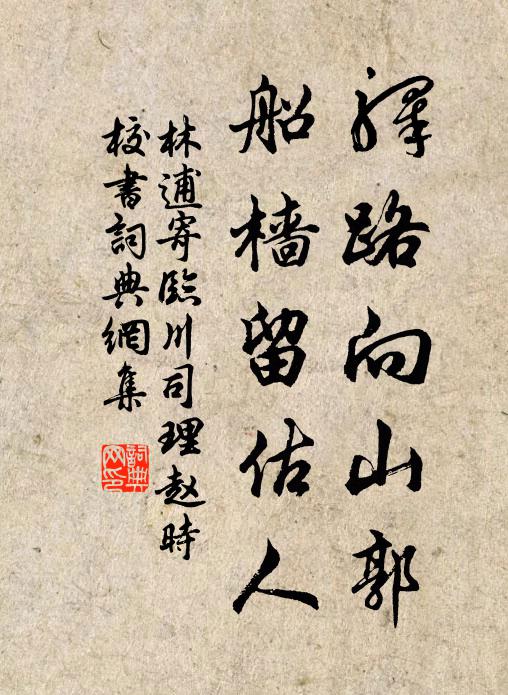 驛路向山郭
船檣留估人
林逋寄臨川司理赵時
校書詞典網集
詞典網印